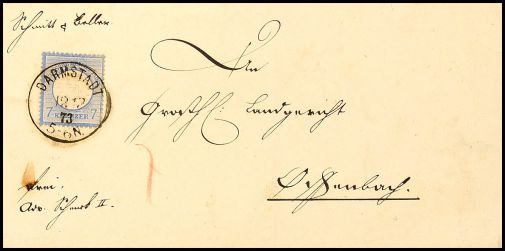 Schmitt & Beller
DARMSTADT
12 12
73
5-6N.
7 KREUZER 7
An
Großh. Landgericht
Offenbach.
frei.
Adv. Schenck II.